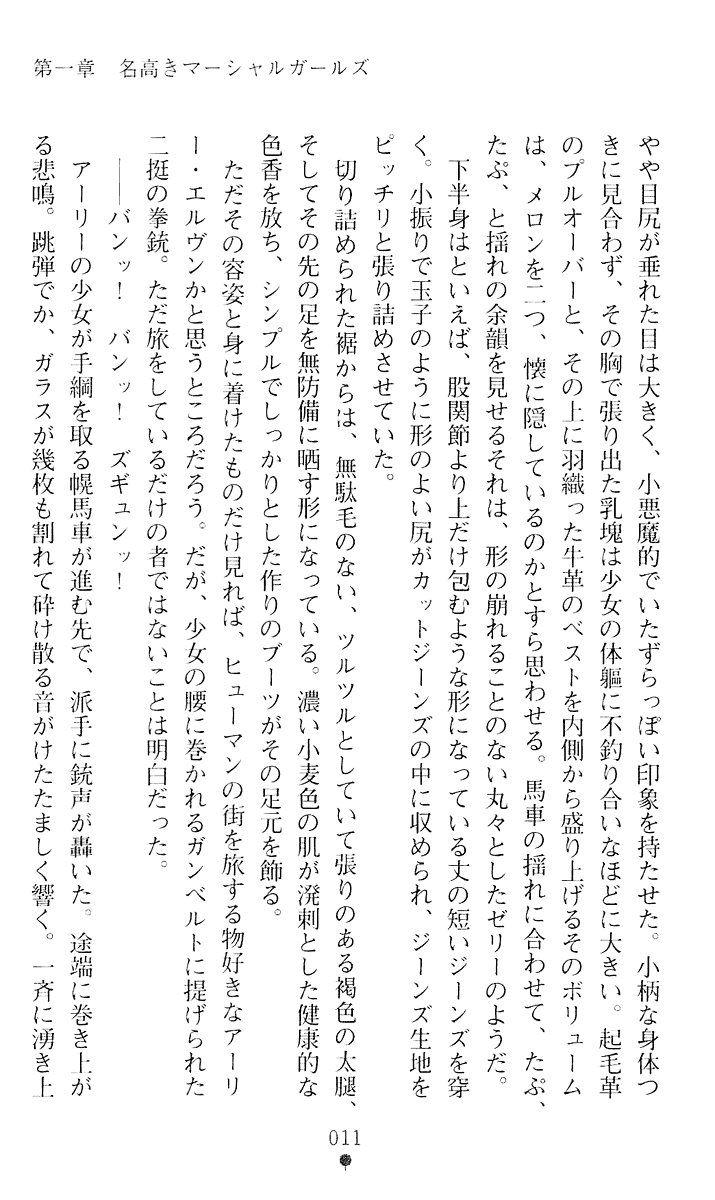 第一章　名高きマーシャルガールズ
やや目尻が垂れた目は大きく、小悪魔的でいたずらっぽい印象を持たせた。小柄な身体つ
きに見合わず、その胸で張り出た乳塊は少女の体軀に不釣り合いなほどに大きい。起毛革
のプルオーバーと、その上に羽織った牛革のベストを内側から盛り上げるそのボリューム
は、メロンを二つ、懐に隠しているのかとすら思わせる。馬車の揺れに合わせて、たぷ、
たぷ、と揺れの余韻を見せるそれは、形の崩れることのない丸々としたゼリーのようだ。
下半身はといえば、股関節より上だけ包むような形になっている丈の短いジーンズを穿
く。小振りで玉子のように形のよい尻がカットジーンズの中に収められ、ジーンズ生地を
ピッチリと張り詰めさせていた。
切り詰められた裾からは、無駄毛のない、ツルツルとしていて張りのある褐色の太腿、
そしてその先の足を無防備に晒す形になっている。濃い小麦色の肌が溌剌とした健康的な
色香を放ち、シンプルでしっかりとした作りのブーツがその足元を飾る。
ただその容姿と身に着けたものだけ見れば、ヒューマンの街を旅する物好きなアーリ
ー・エルヴンかと思うところだろう。だが、少女の腰に巻かれるガンベルトに提げられた
二挺の拳銃。ただ旅をしているだけの者ではないことは明白だった。
――バンッ！　バンッ！　ズギュンッ！
アーリーの少女が手綱を取る幌馬車が進む先で、派手に銃声が轟いた。途端に巻き上が
る悲鳴。跳弾でか、ガラスが幾枚も割れて砕け散る音がけたたましく響く。一斉に湧き上
011